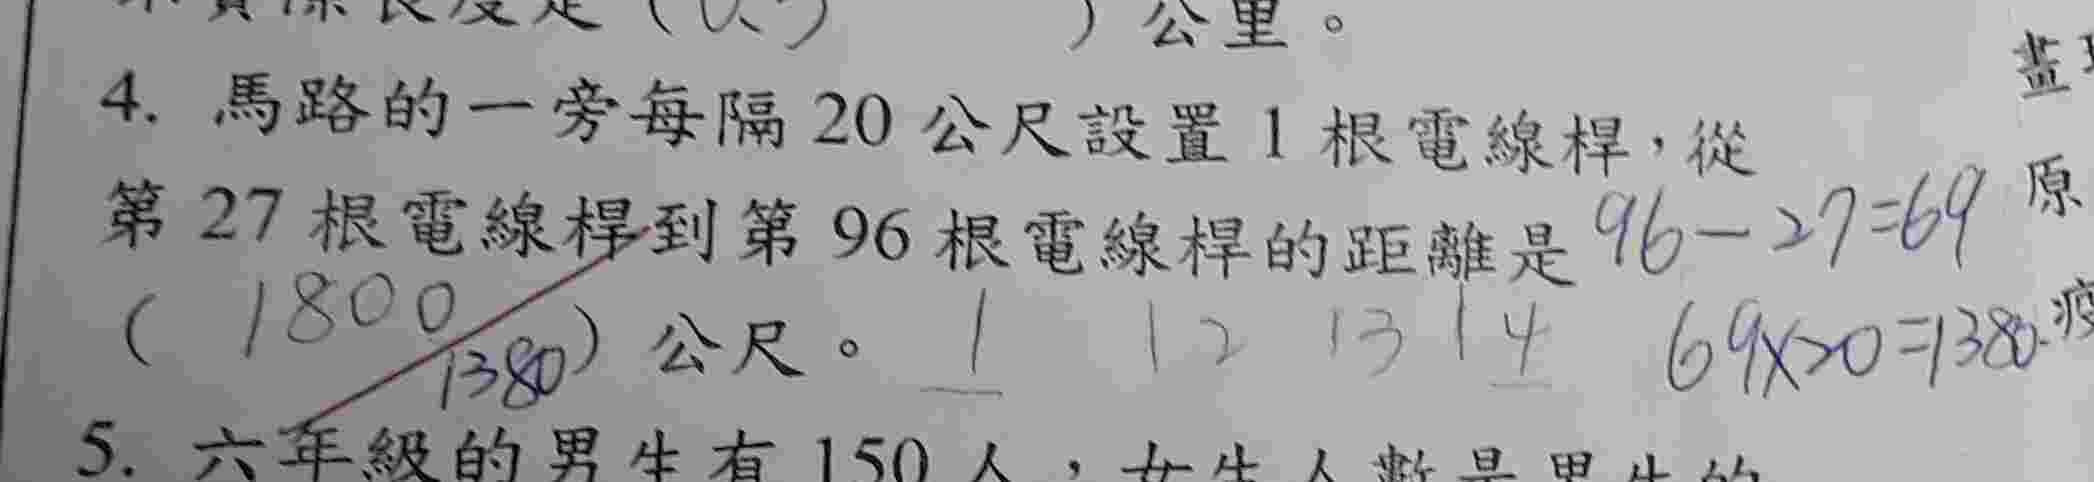 長度是（0.5）公里。
4. 馬路的一旁每隔 20 公尺設置 1 根電線桿，從
第 27 根電線桿到第 96 根電線桿的距離是
96-27=69
（ 1800 1380）公尺。
1 12 13 14
69×20=1380
5. 六年級的男生有 150 人，女生人數是男生的
原